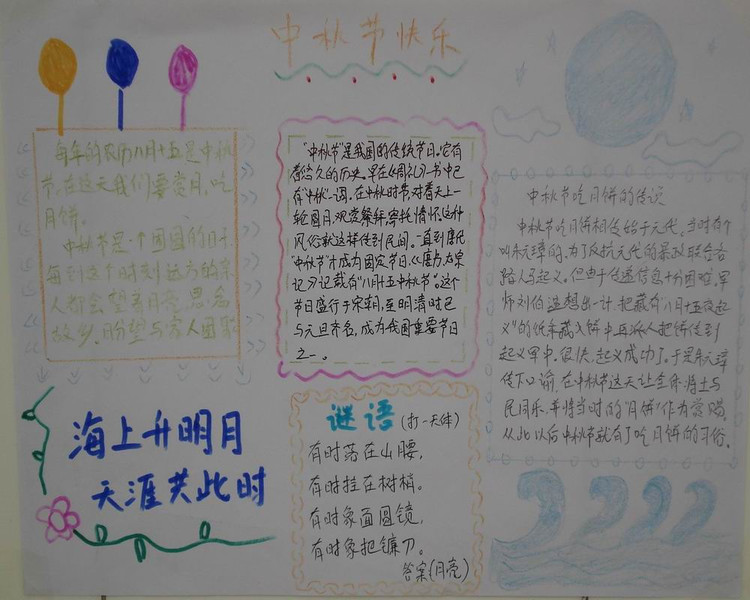 中秋节快乐
每年的农历八月十五是中秋
节,在这天我们要赏月,吃
月饼。
中秋节是一个团圆的日子,
每到这个时刻远方的亲
人都会望着月亮思念
故乡,盼望与家人团聚
"中秋节"是我国的传统节日。它有
着悠久的历史。早在《周礼》一书中已
有"中秋"一词。在中秋时节,对着天上一
轮圆月,观赏祭拜寄托情怀这种
风俗就这样传到民间。一直到唐代
"中秋节"才成为固定节日,《唐书太宗
记》记载有"八月十五中秋节"。这个
节日盛行于宋朝,至明清时已
与元旦齐名,成为我国重要节日
之一。
中秋节吃月饼的传说
中秋节吃月饼相传始于元代。当时有个
叫朱元璋的,为了反抗元代的暴政联合各
路人马起义。但由于传递信息十分困难,军
师刘伯温想出一计,把藏有"八月十五夜起
义"的纸条藏入饼中再派人把饼传到
起义军中。很快,起义成功了。于是朱元璋
传下口谕,在中秋节这天让全体将士与
民同乐,并将当时的"月饼"作为赏赐。
从此以后中秋节就有了吃月饼的习俗。
海上升明月
天涯共此时
谜语(打一天体)
有时落在山腰,
有时挂在树梢。
有时象面圆镜,
有时象把镰刀。
答案(月亮)